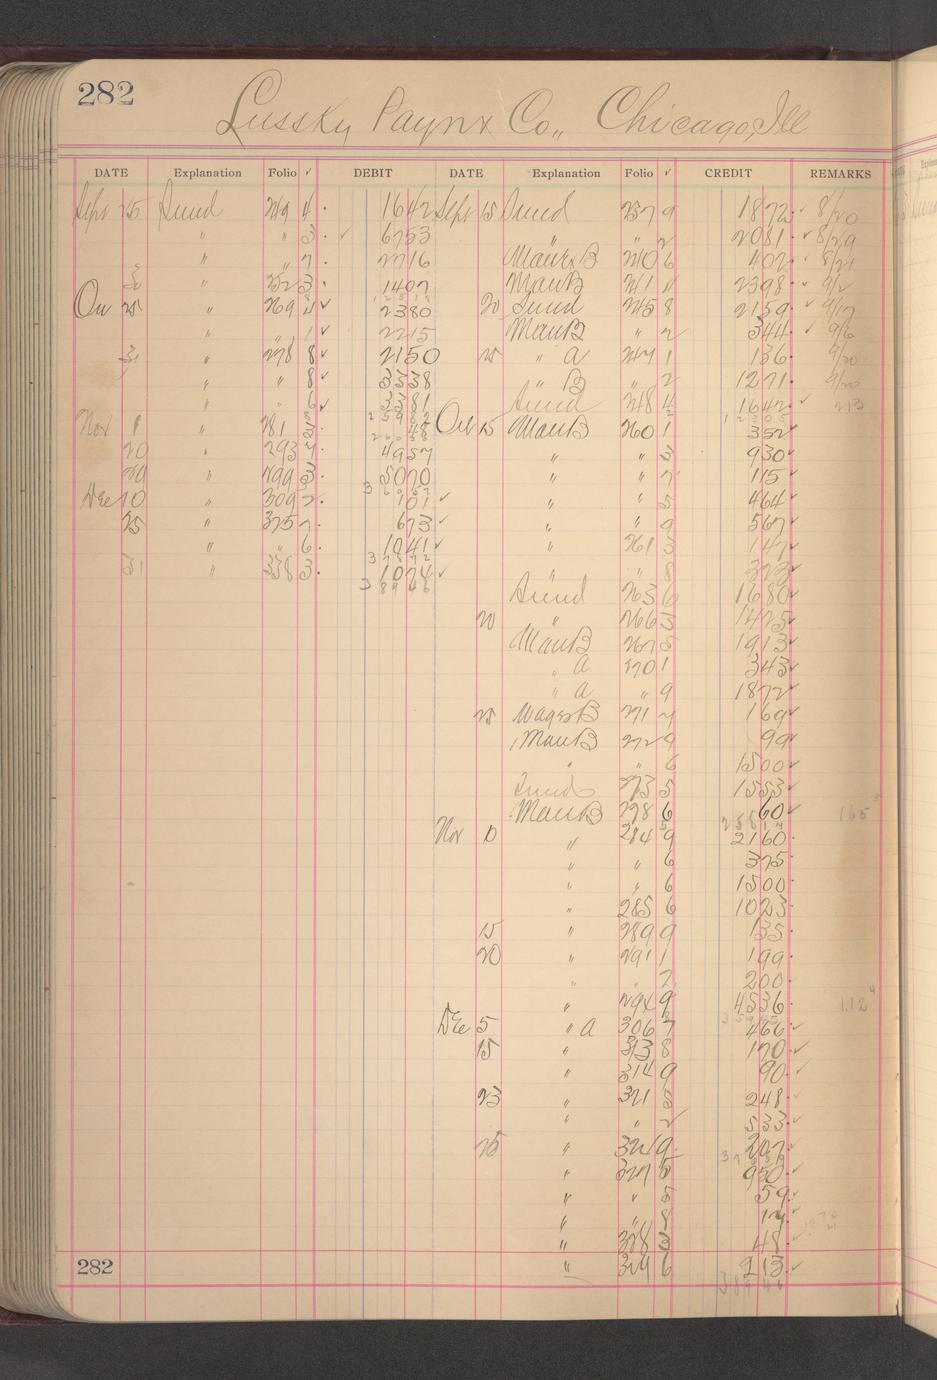 282
Lussky Paynx Co., Chicago, Ill
DATE Explanation Folio ✓ DEBIT DATE Explanation Folio ✓ CREDIT REMARKS
Sept 25 Sund 249 4 1642 Sept 15 Sund 237 9 1872 8/20
" " 3 6753 " " 2 2081 8/29
" " 7 2716 B 240 6 402 8/21
" 252 3 1407 ManB 241 " 2398 9/2
25 " 269 4 2380 20 Sund 245 8 2159 9/17
" " 1 2215 ManB " 2 344 9/6
31 " 278 8 2150 25 " a 247 1 136 9/20
" " 8 3338 " B " 2 1271 9/20
" " 6 3381 Sund 248 4 1642 213
Nov 1 " 281 48 Oct 15 ManB 260 1 352
20 " 293 7 4957 " " 3 930
29 " 299 3 5070 " " 7 115
Dec 10 " 309 2 101 " " 5 464
25 " 325 7 673 " " 9 567
" " 6 1041 " 261 3 147
31 " 338 3 1074 " " 8 323
38946 Sund 263 6 1680
20 " 266 3 1425
ManB 267 5 1913
" a 270 1 343
" a " 9 1872
25 WagesB 271 7 169
ManB 272 9 99
" " 6 1500
Sund 273 5 1553
ManB 278 6 60 165
Nov 10 " 284 9 2160
" " 6 375
" " 6 1500
" 285 6 1023
15 " 289 9 135
20 " 291 1 199
" " 7 200
" 294 9 4536 112
Dec 5 " a 306 7 466
15 " 313 8 170
" 314 9 90
23 " 321 5 248
" " 2 533
25 " 324 9 207
" 327 5 950
" " 5 59
" " 8 14
" 328 3 48
282 " 329 6 213
38946